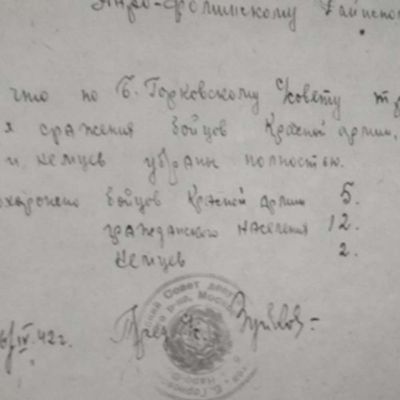 Наро-Фоминскому Райиспол
что по Б. Горковскому Совету тр
я сражения бойцов Красный армии,
и немцев убраны полностью.
охоронено бойцов Красной Армии 5.
гражданского населения 12.
немцев 2.
6/IV.42г. Пред. Ч/с.